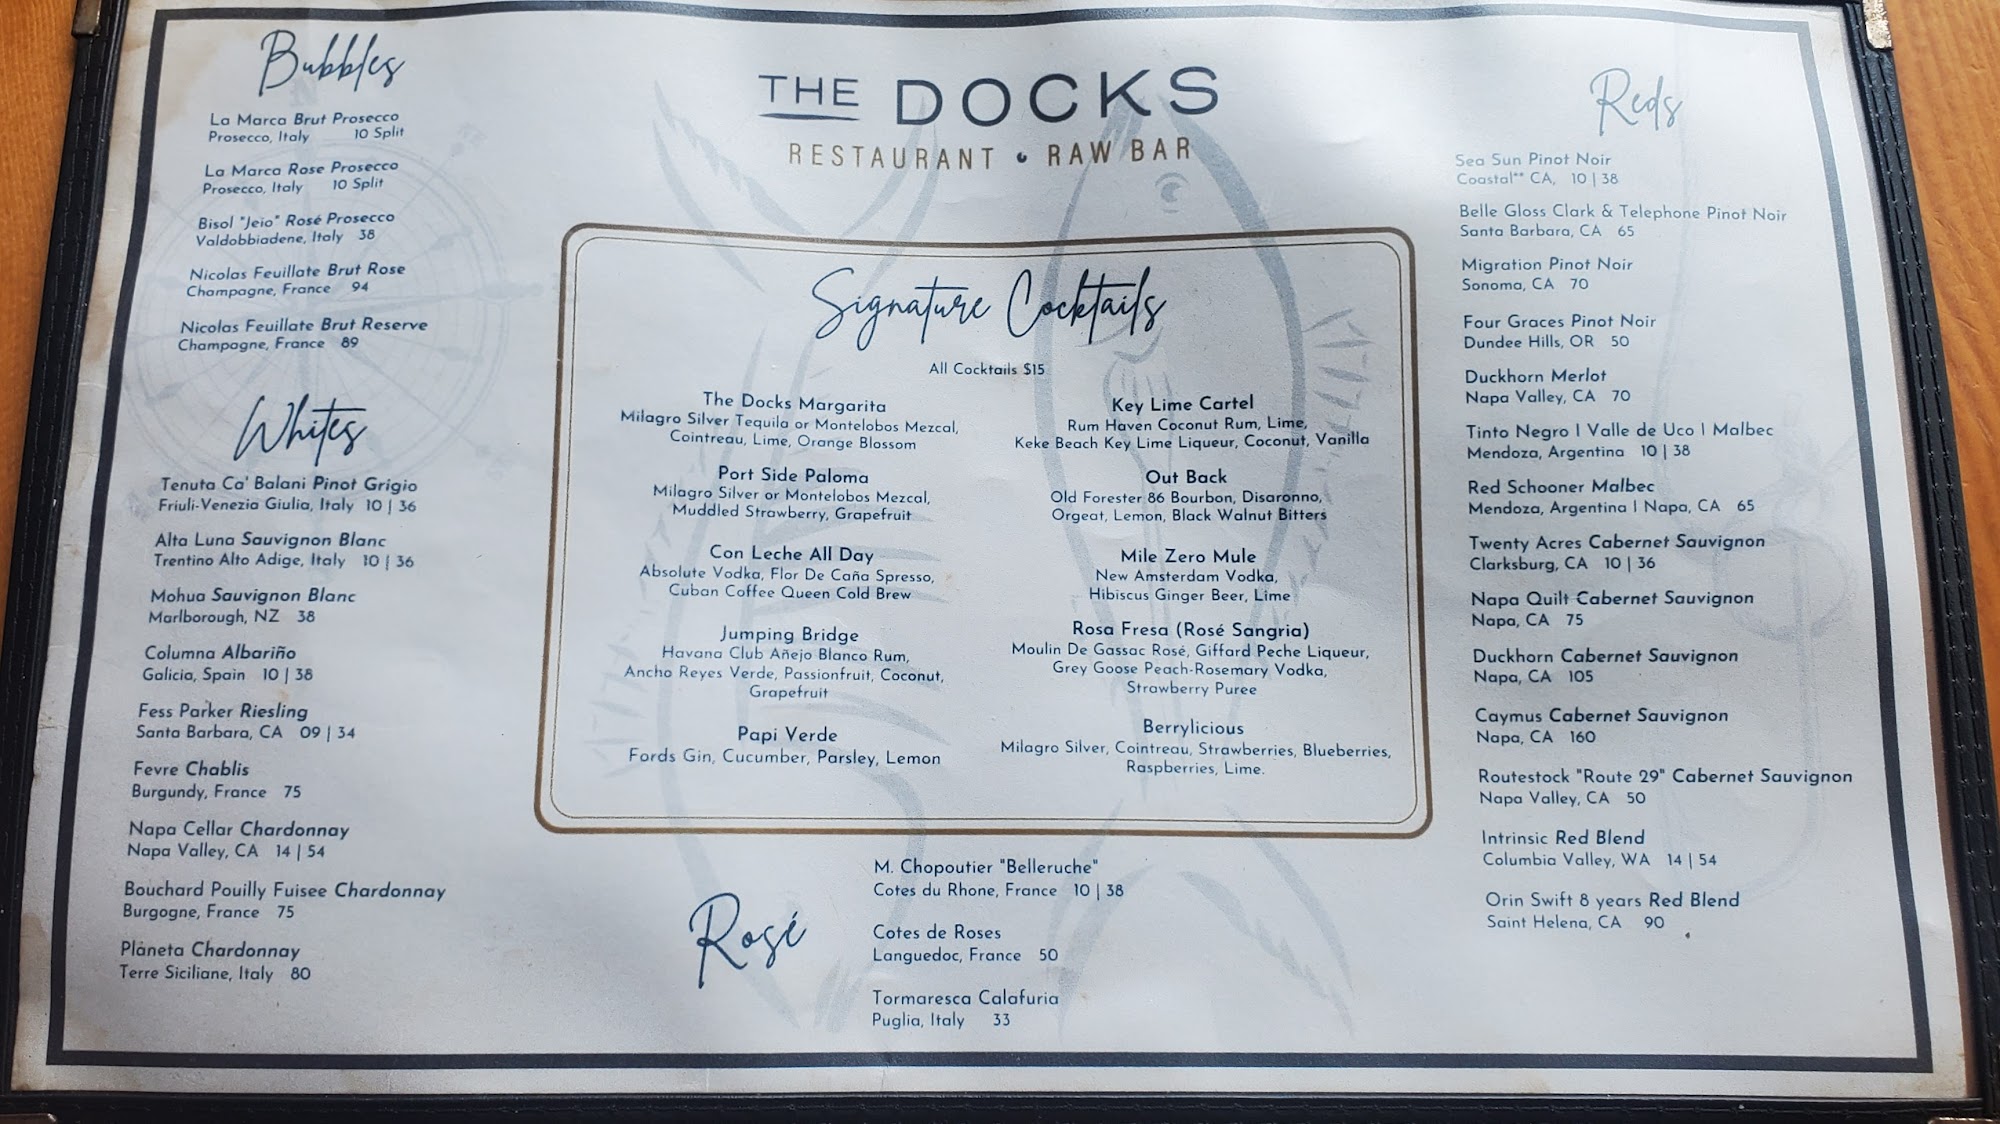 Bubbles
La Marca Brut Prosecco
Prosecco, Italy 10 Split
La Marca Rose Prosecco
Prosecco, Italy 10 Split
Bisol "Jeio" Rosé Prosecco
Valdobbiadene, Italy 38
Nicolas Feuillate Brut Rose
Champagne, France 94
Nicolas Feuillate Brut Reserve
Champagne, France 89
Whites
Tenuta Ca' Balani Pinot Grigio
Friuli-Venezia Giulia, Italy 10 | 36
Alta Luna Sauvignon Blanc
Trentino Alto Adige, Italy 10 | 36
Mohua Sauvignon Blanc
Marlborough, NZ 38
Columna Albariño
Galicia, Spain 10 | 38
Fess Parker Riesling
Santa Barbara, CA 09 | 34
Fevre Chablis
Burgundy, France 75
Napa Cellar Chardonnay
Napa Valley, CA 14 | 54
Bouchard Pouilly Fuisee Chardonnay
Burgogne, France 75
Planeta Chardonnay
Terre Siciliane, Italy 80
THE DOCKS
RESTAURANT • RAW BAR
Signature Cocktails
All Cocktails $15
The Docks Margarita
Milagro Silver Tequila or Montelobos Mezcal,
Cointreau, Lime, Orange Blossom
Port Side Paloma
Milagro Silver or Montelobos Mezcal,
Muddled Strawberry, Grapefruit
Con Leche All Day
Absolute Vodka, Flor De Caña Spresso,
Cuban Coffee Queen Cold Brew
Jumping Bridge
Havana Club Añejo Blanco Rum,
Ancho Reyes Verde, Passionfruit, Coconut,
Grapefruit
Papi Verde
Fords Gin, Cucumber, Parsley, Lemon
Key Lime Cartel
Rum Haven Coconut Rum, Lime,
Keke Beach Key Lime Liqueur, Coconut, Vanilla
Out Back
Old Forester 86 Bourbon, Disaronno,
Orgeat, Lemon, Black Walnut Bitters
Mile Zero Mule
New Amsterdam Vodka,
Hibiscus Ginger Beer, Lime
Rosa Fresa (Rosé Sangria)
Moulin De Gassac Rosé, Giffard Peche Liqueur,
Grey Goose Peach-Rosemary Vodka,
Strawberry Puree
Berrylicious
Milagro Silver, Cointreau, Strawberries, Blueberries,
Raspberries, Lime.
Rosé
M. Chopoutier "Belleruche"
Cotes du Rhone, France 10 | 38
Cotes de Roses
Languedoc, France 50
Tormaresca Calafuria
Puglia, Italy 33
Reds
Sea Sun Pinot Noir
Coastal** CA, 10 | 38
Belle Gloss Clark & Telephone Pinot Noir
Santa Barbara, CA 65
Migration Pinot Noir
Sonoma, CA 70
Four Graces Pinot Noir
Dundee Hills, OR 50
Duckhorn Merlot
Napa Valley, CA 70
Tinto Negro | Valle de Uco | Malbec
Mendoza, Argentina 10 | 38
Red Schooner Malbec
Mendoza, Argentina | Napa, CA 65
Twenty Acres Cabernet Sauvignon
Clarksburg, CA 10 | 36
Napa Quilt Cabernet Sauvignon
Napa, CA 75
Duckhorn Cabernet Sauvignon
Napa, CA 105
Caymus Cabernet Sauvignon
Napa, CA 160
Routestock "Route 29" Cabernet Sauvignon
Napa Valley, CA 50
Intrinsic Red Blend
Columbia Valley, WA 14 | 54
Orin Swift 8 years Red Blend
Saint Helena, CA 90